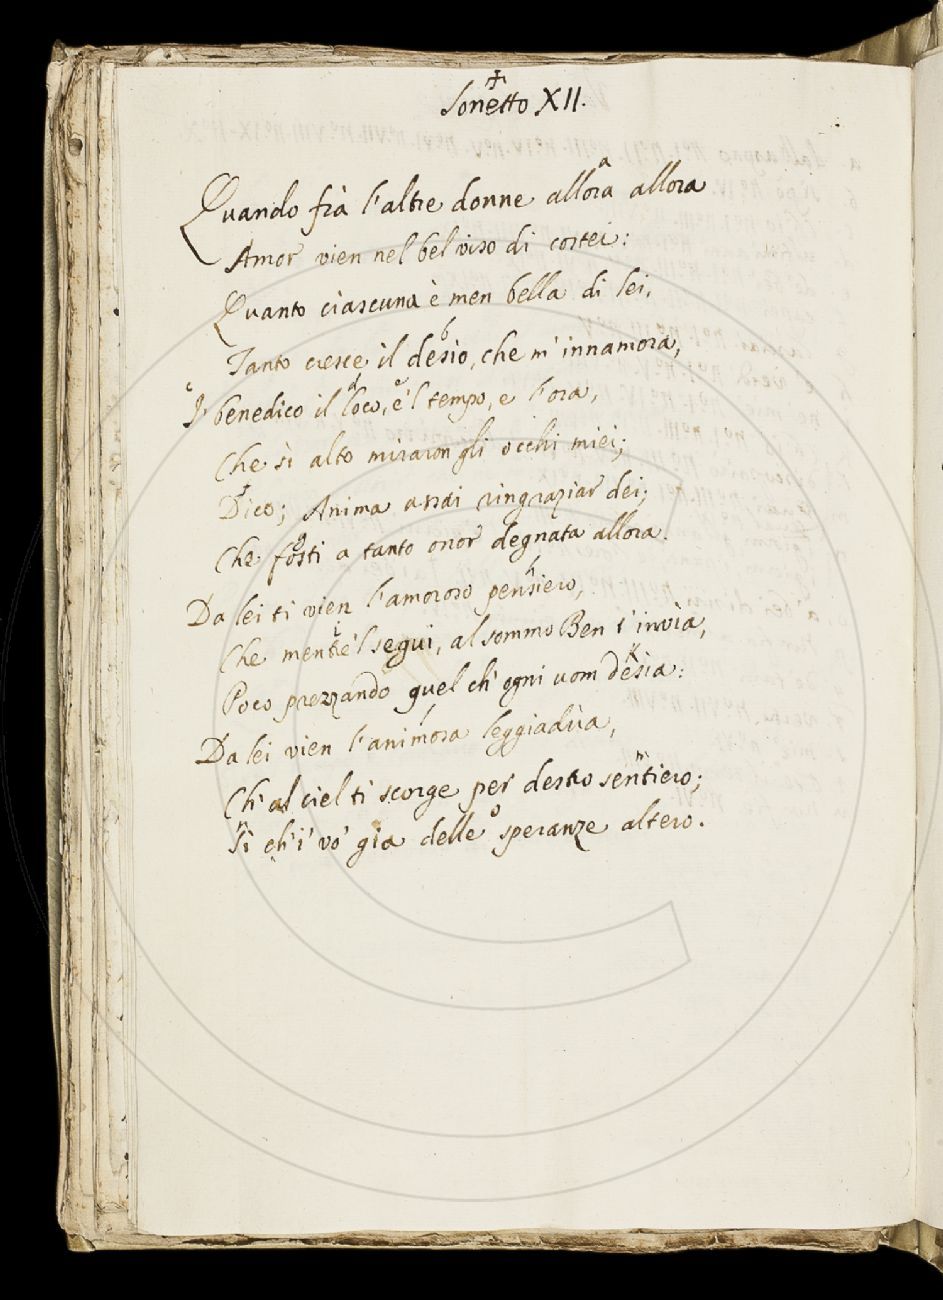 Sonetto XII.
Quando frà l'altre donne allora allora
Amor vien nel bel viso di costei:
Quanto ciascuna è men bella di lei,
Tanto cresce il desio, che m'innamora,
I' benedico il loco, e'l tempo, e l'ora,
Che sì alto miraron gli occhi miei;
Dico; Anima assai ringraziar dei;
Che fosti a tanto onor degnata allora.
Da lei ti vien l'amoroso pensiero,
Che mentre'l segui, al sommo Ben t'invìa,
Poco prezzando quel ch'ogni uom desìa:
Da lei vien l'animosa leggiadria,
Ch'al ciel ti scorge per destro sentiero;
Sì ch'i' vo' gia delle speranze altero.